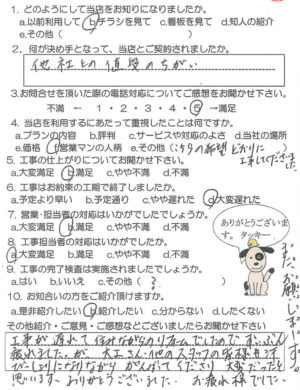 1. どのようにして当店をお知りになりましたか。
a.以前利用して b.チラシを見て c.看板を見て d.知人の紹介
e.その他（　　　　　）
2. 何が決め手となって、当店とご契約されましたか。
他社との値段のちがい
3.お問合せを頂いた際の電話対応についてご感想をお聞かせ下さい。
不満 ← 1・2・3・4・5 →満足
4. 当店を利用するにあたって重視したことは何ですか。
a.プランの内容 b.評判 c.サービスや対応のよさ d.当社の場所
e.価格 f.営業マンの人柄 e.その他（こちらの希望どおりに
工事してくださいました
5. 工事の仕上がりについてお聞かせ下さい。
a.大変満足 b.満足 c.やや不満 d.不満
6. 工事はお約束の工期で終了しましたか。
a.予定より早い b.予定通り c.やや遅れた d.大変遅れた
7. 営業・担当者の対応はいかがでしたでしょうか。
a.大変満足 b.満足 c.やや不満 d.不満
8. 工事担当者の対応はいかがでしたか。
a.大変満足 b.満足 c.やや不満 d.不満
9. 工事の完了検査は実施されましたでしょうか。
a.はい b.いいえ c.その他（ ? ）
10. お知合いの方をご紹介頂けますか。
a.是非紹介したい b.紹介したい c.分からない d.したくない
その他紹介・ご意見・ご感想などございましたらお聞かせ下さい
工事が遅れて住みながらのリフォームでしたので ずいぶん
疲れました。が 大工さん、他のスタッフの皆様も
がんばってくださり 大変だったと
思います。ありがとうございました。 お疲れ様でした
ありがとうございま
す。 タッキー
またお願いします。